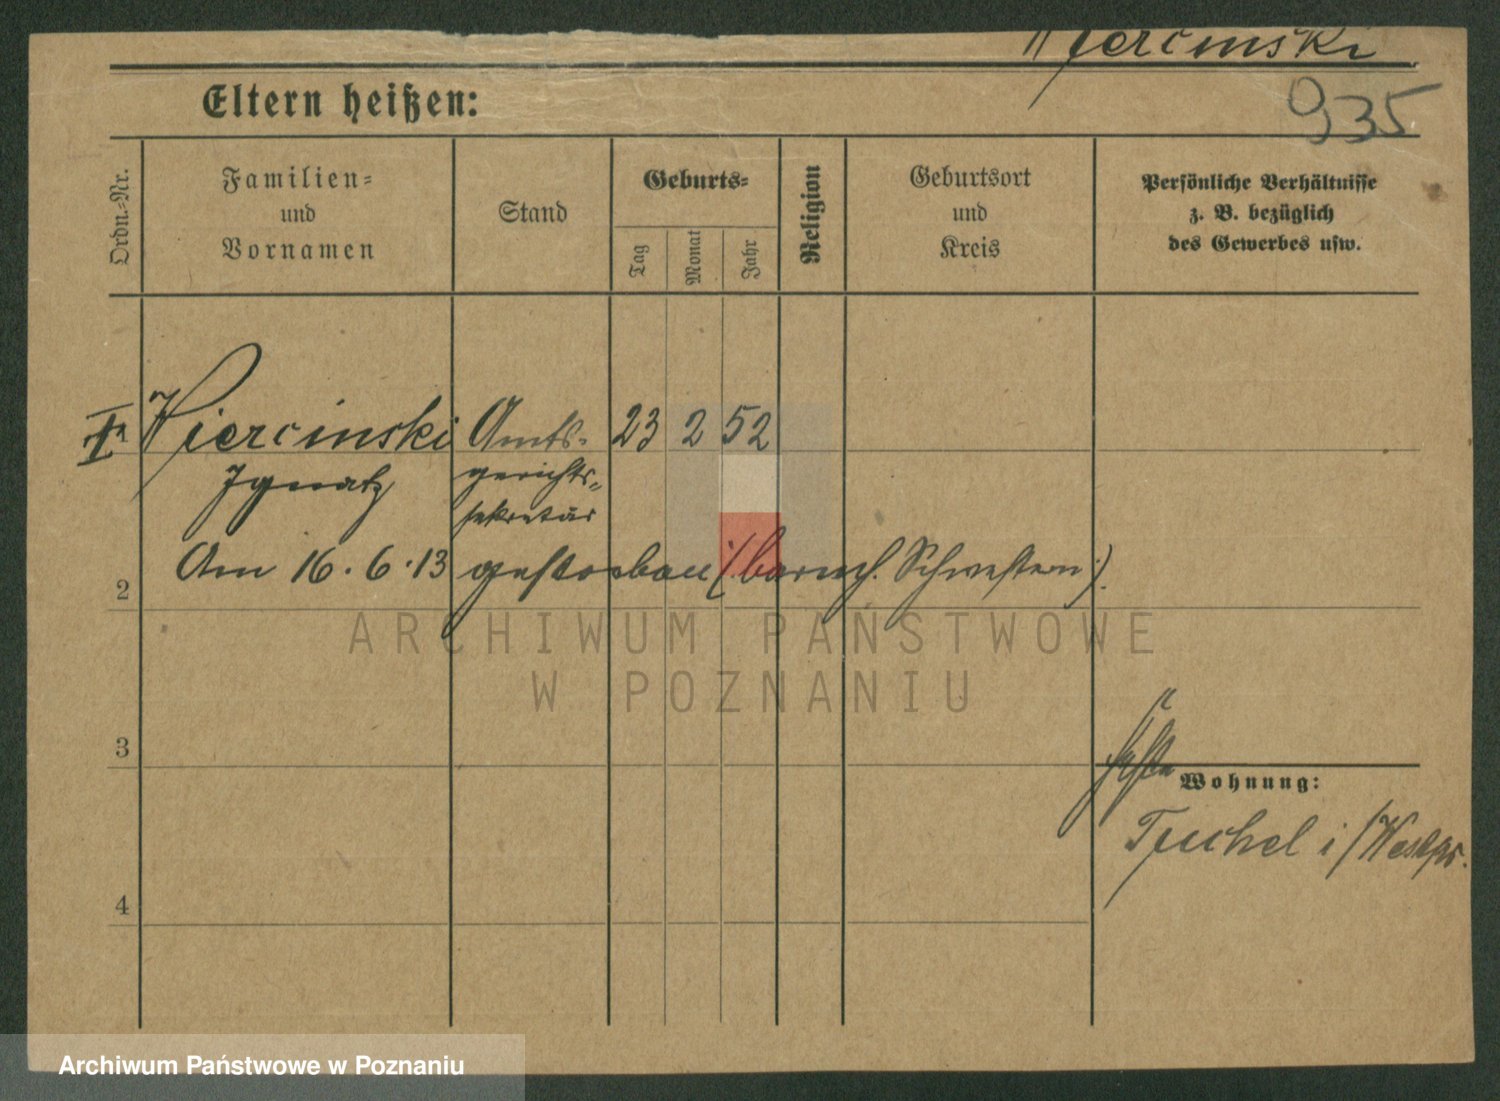 Wiercinski
935
Eltern heißen:
Ordn.-Nr.
Familien-
und
Vornamen
Stand
Geburts-
Tag
Monat
Jahr
Religion
Geburtsort
und
Kreis
Persönliche Verhältnisse
z. B. bezüglich
des Gewerbes usw.
1 Wiercinski Amts- 23 2 52
Ignatz gerichts-
sekretär
Am 16.6.13 gestorben (barmh. Schwestern).
2
ARCHIWUM PAŃSTWOWE
W POZNANIU
3
Wohnung:
Tuchel i/Westpr.
4
Archiwum Państwowe w Poznaniu